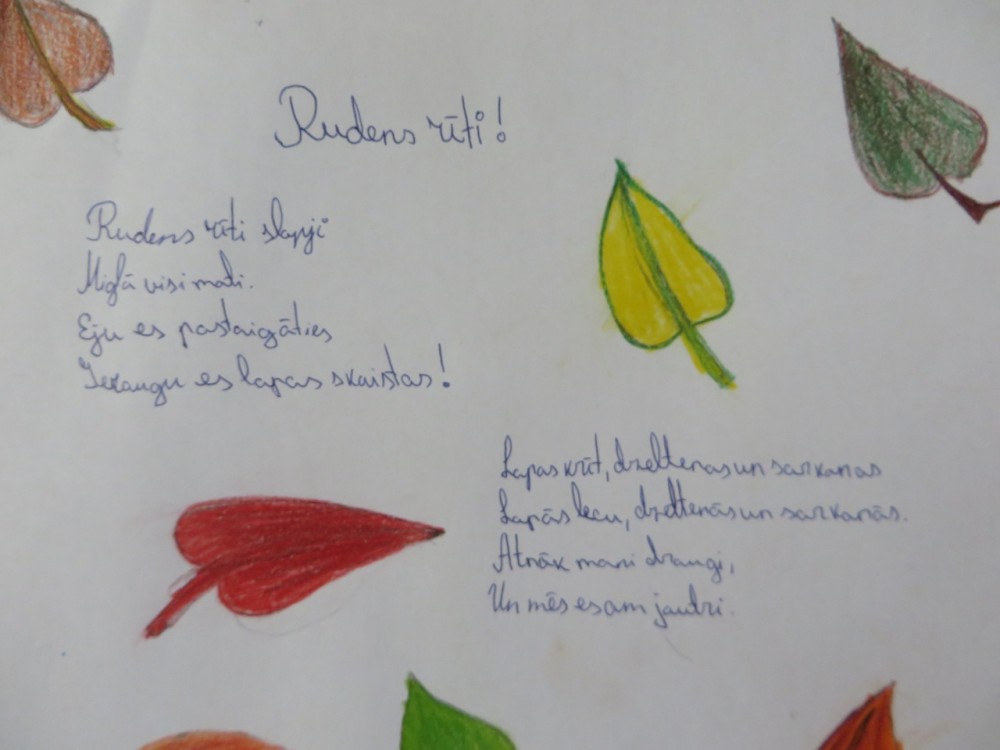 Rudens rīti!
Rudens rīti slapji
Miglā visi mati.
Eju es pastaigāties
Ieraugu es lapas skaistas!
Lapas krīt, dzeltenas un sarkanas
Lapās lecu, dzeltenās un sarkanās.
Atnāk mani draugi,
Un mēs esam jautri.